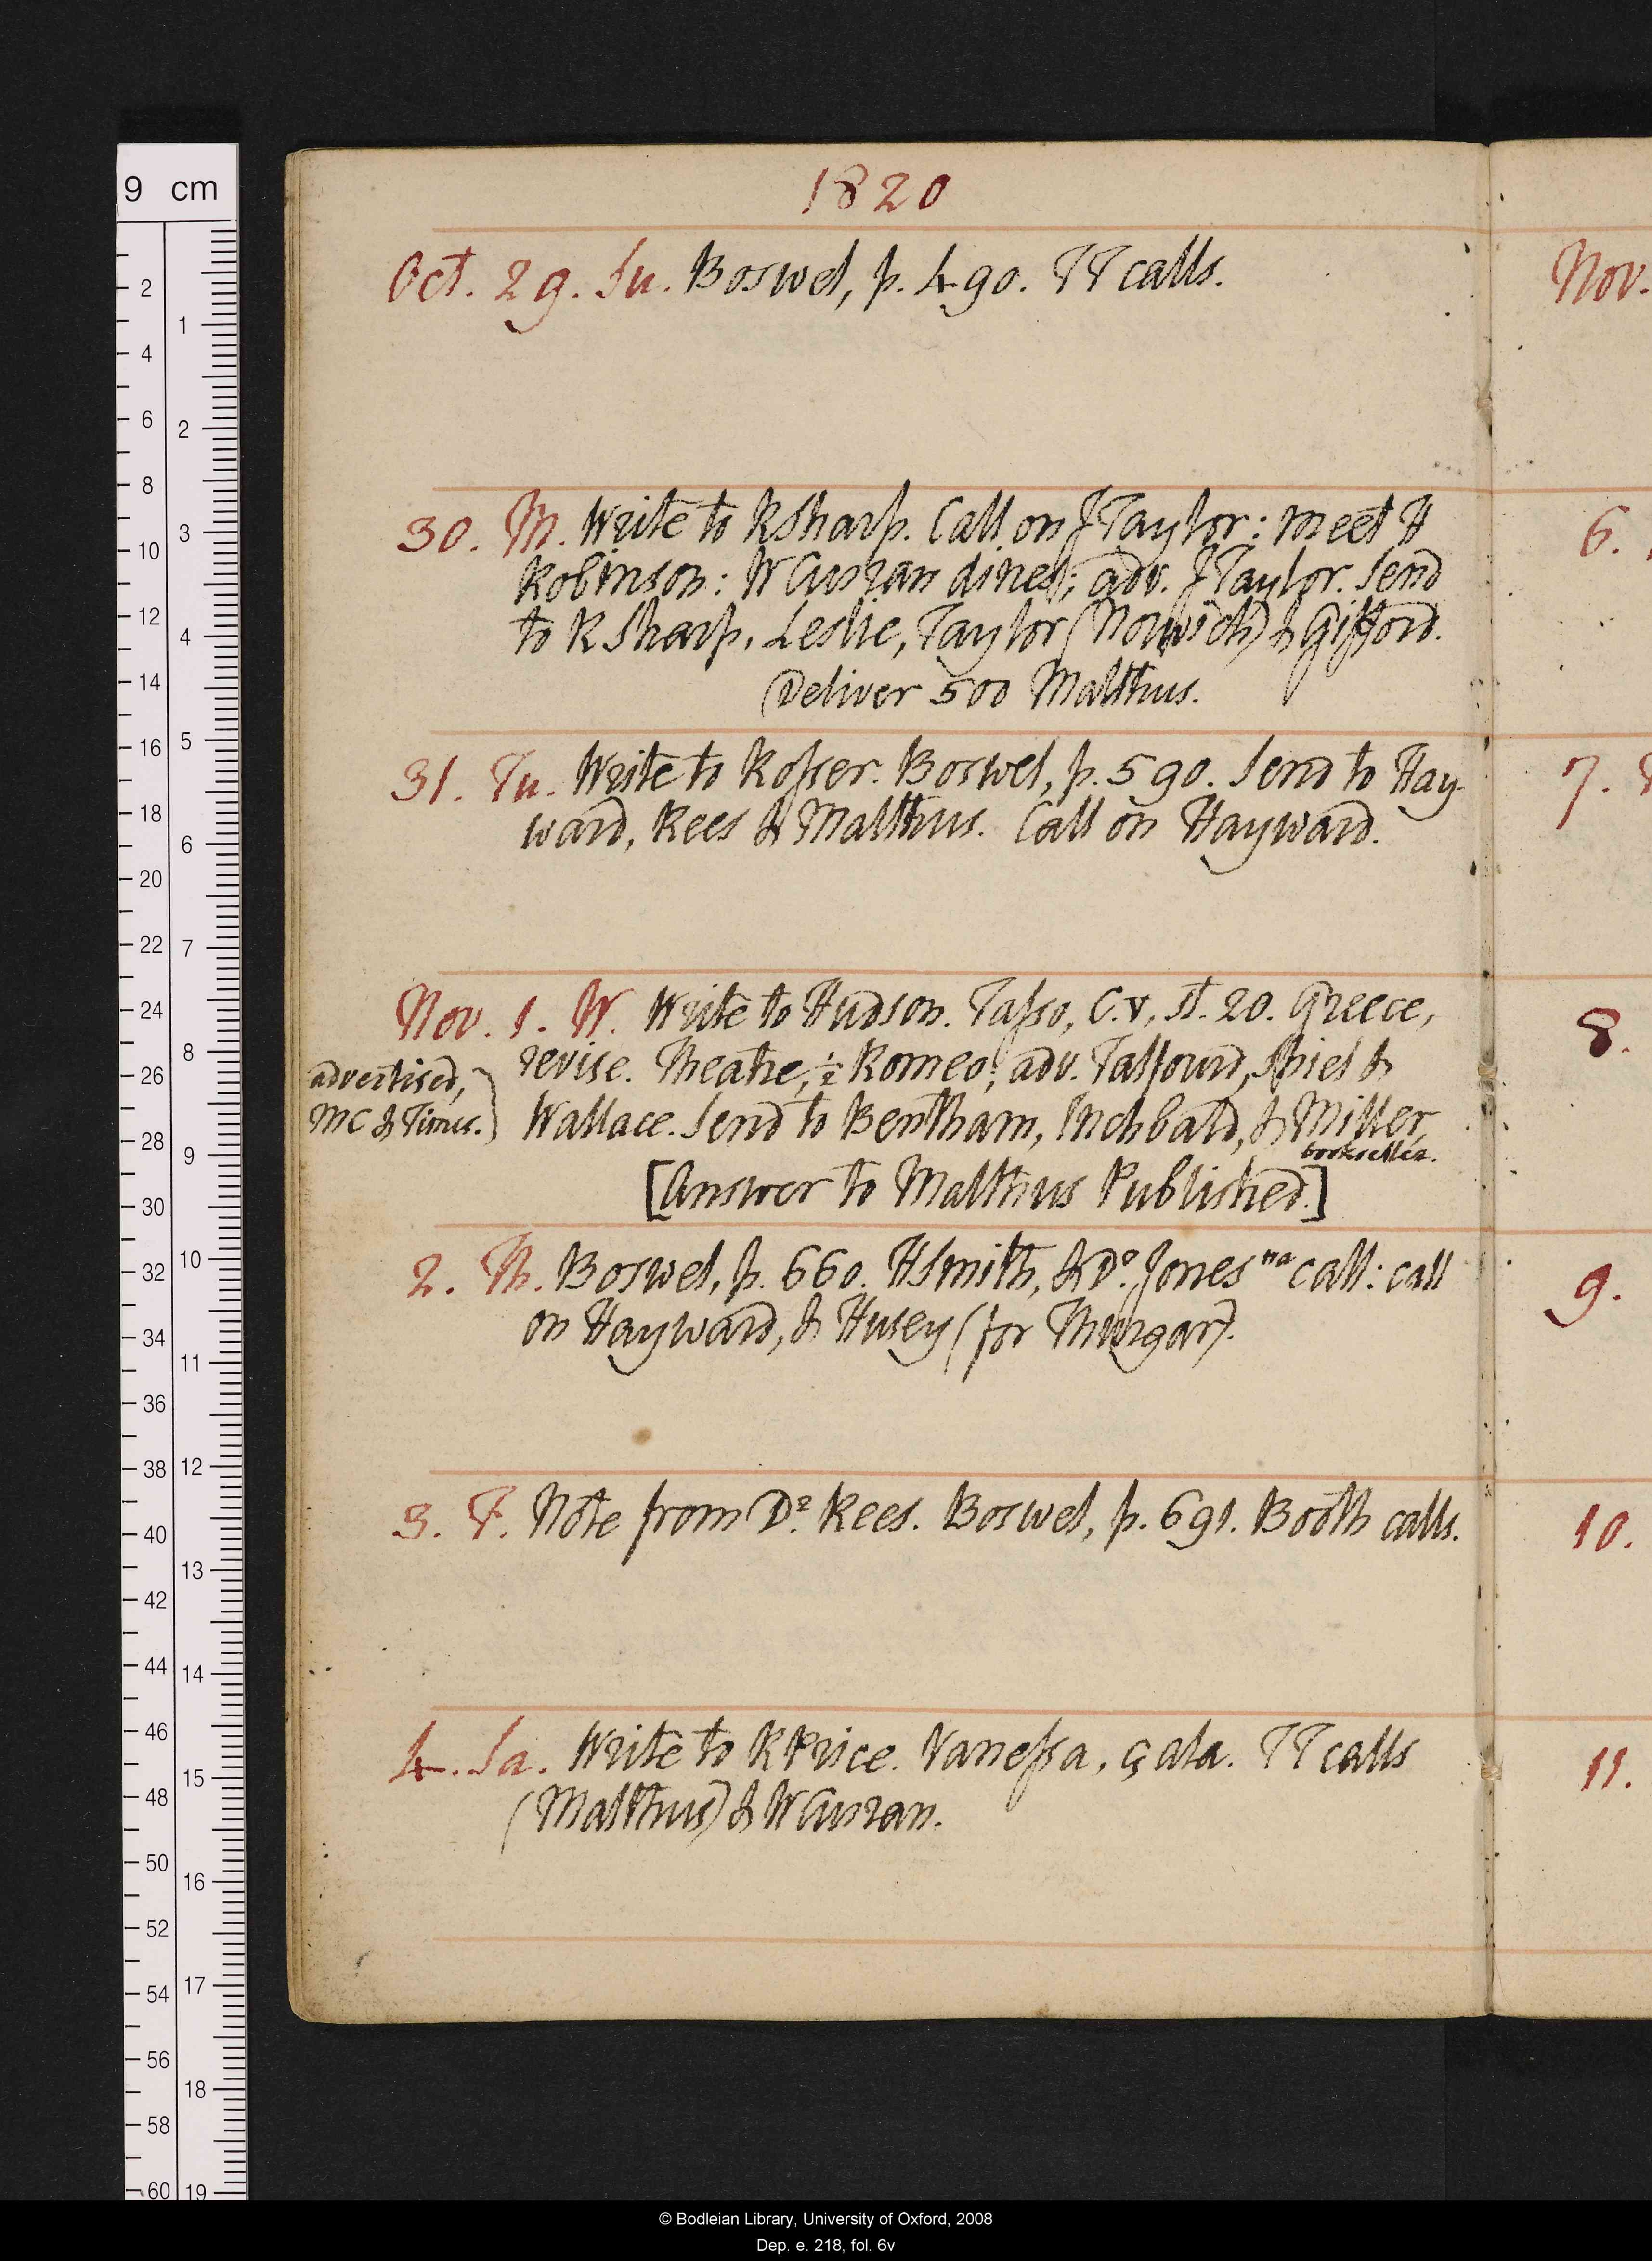 1820
Oct. 29. Su. Boswel, p. 490. TT calls.
30. M. Write to R Sharp. Call on J Taylor: meet H
Robinson: W Curran dines; adv. J Taylor. Send
to R Sharp, Leslie, Taylor (Norwich) & Gifford.
Deliver 500 Malthus.
31. Tu. Write to Rosser. Boswel, p. 590. Send to Hay-
ward, Rees & Malthus. Call on Hayward.
Nov. 1. W. Write to Hudson. Tasso, C. V, st. 20. Greece,
revise. Theatre, ½ Romeo; adv. Talfourd, Shiel &
advertised,
MC & Times.
Wallace. Send to Bentham, Inchbald, & Miller,
bookseller.
[Answer to Malthus Published.]
2. Th. Boswel, p. 660. H Smith, & Do. Jones na call: call
on Hayward, & Husey (for Mungar).
3. F. Note from Dr. Rees. Boswel, p. 691. Booth calls.
4. Sa. Write to R Price. Vanessa, çala. TT calls
(Malthus) & W Curran.
Nov.
6.
7.
8.
9.
10.
11.
9 cm
2
4
6
8
10
12
14
16
18
20
22
24
26
28
30
32
34
36
38
40
42
44
46
48
50
52
54
56
58
60
1
2
3
4
5
6
7
8
9
10
11
12
13
14
15
16
17
18
19
© Bodleian Library, University of Oxford, 2008
Dep. e. 218, fol. 6v